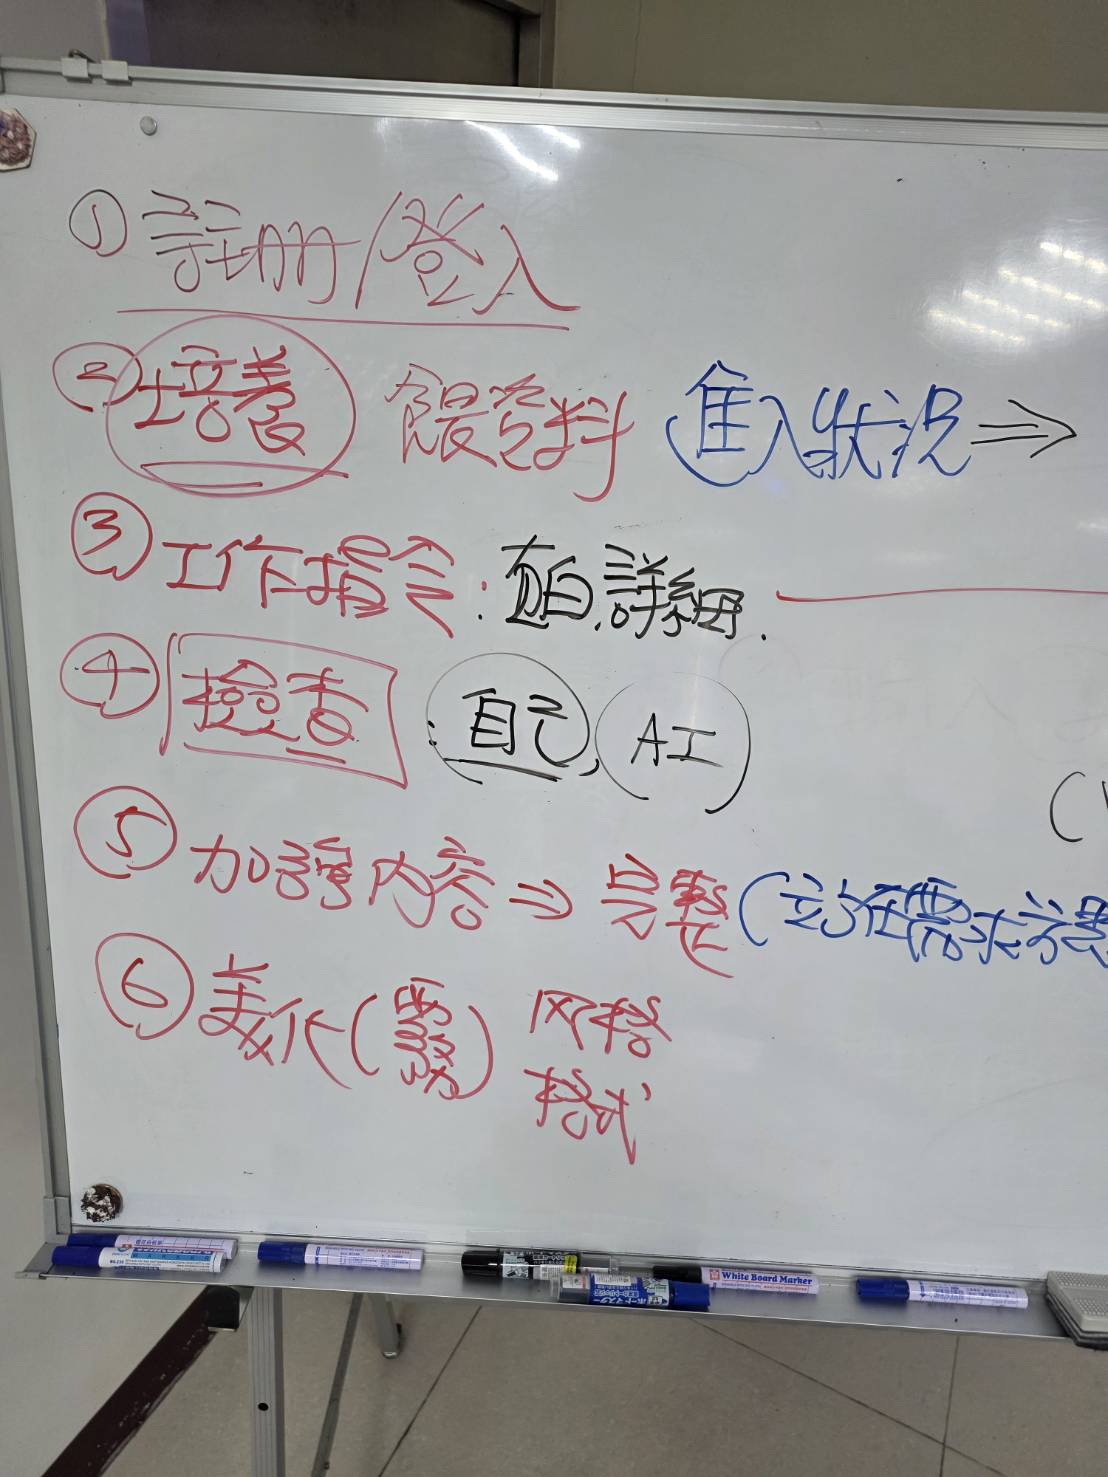 ① 註冊/登入
② 培養 餵資料 進入狀況 ⇒
③ 工作指令: 直白.詳細.
④ 檢查 : 自己, AI
⑤ 加強內容 ⇒ 完整 (主動 需求
⑥ 美化 ( ) 风格
格式
White Board Marker